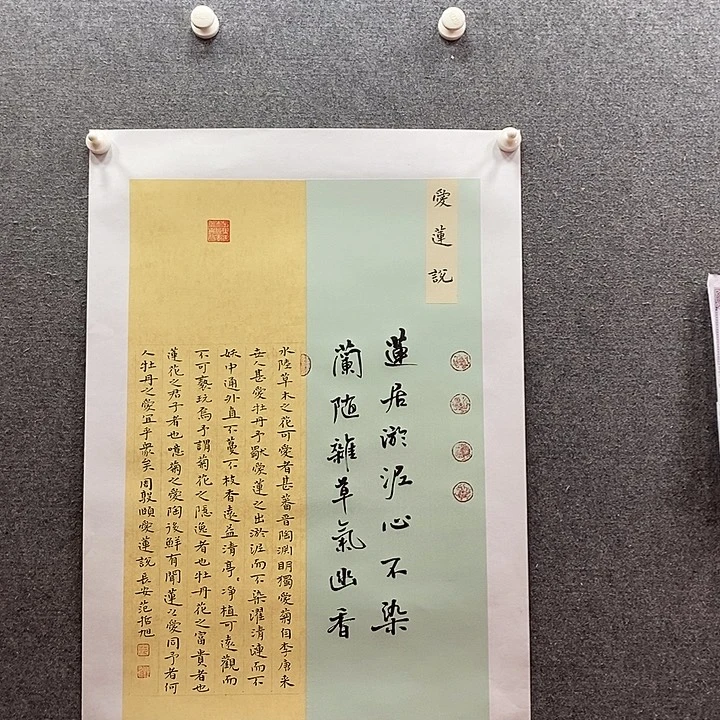 愛蓮說
蓮居淤泥心不染
蘭随雜草氣幽香
水陸草木之花可愛者甚蕃晉陶淵明獨愛菊自李唐来
世人甚愛牡丹予獨愛蓮之出淤泥而不染濯清漣而不
妖中通外直不蔓不枝香遠益清亭々淨植可遠觀而
不可褻玩焉予謂菊花之隱逸者也牡丹花之富貴者也
蓮花之君子者也噫菊之愛陶後鮮有聞蓮之愛同予者何
人牡丹之愛宜乎衆矣周敦頤愛蓮說長安范